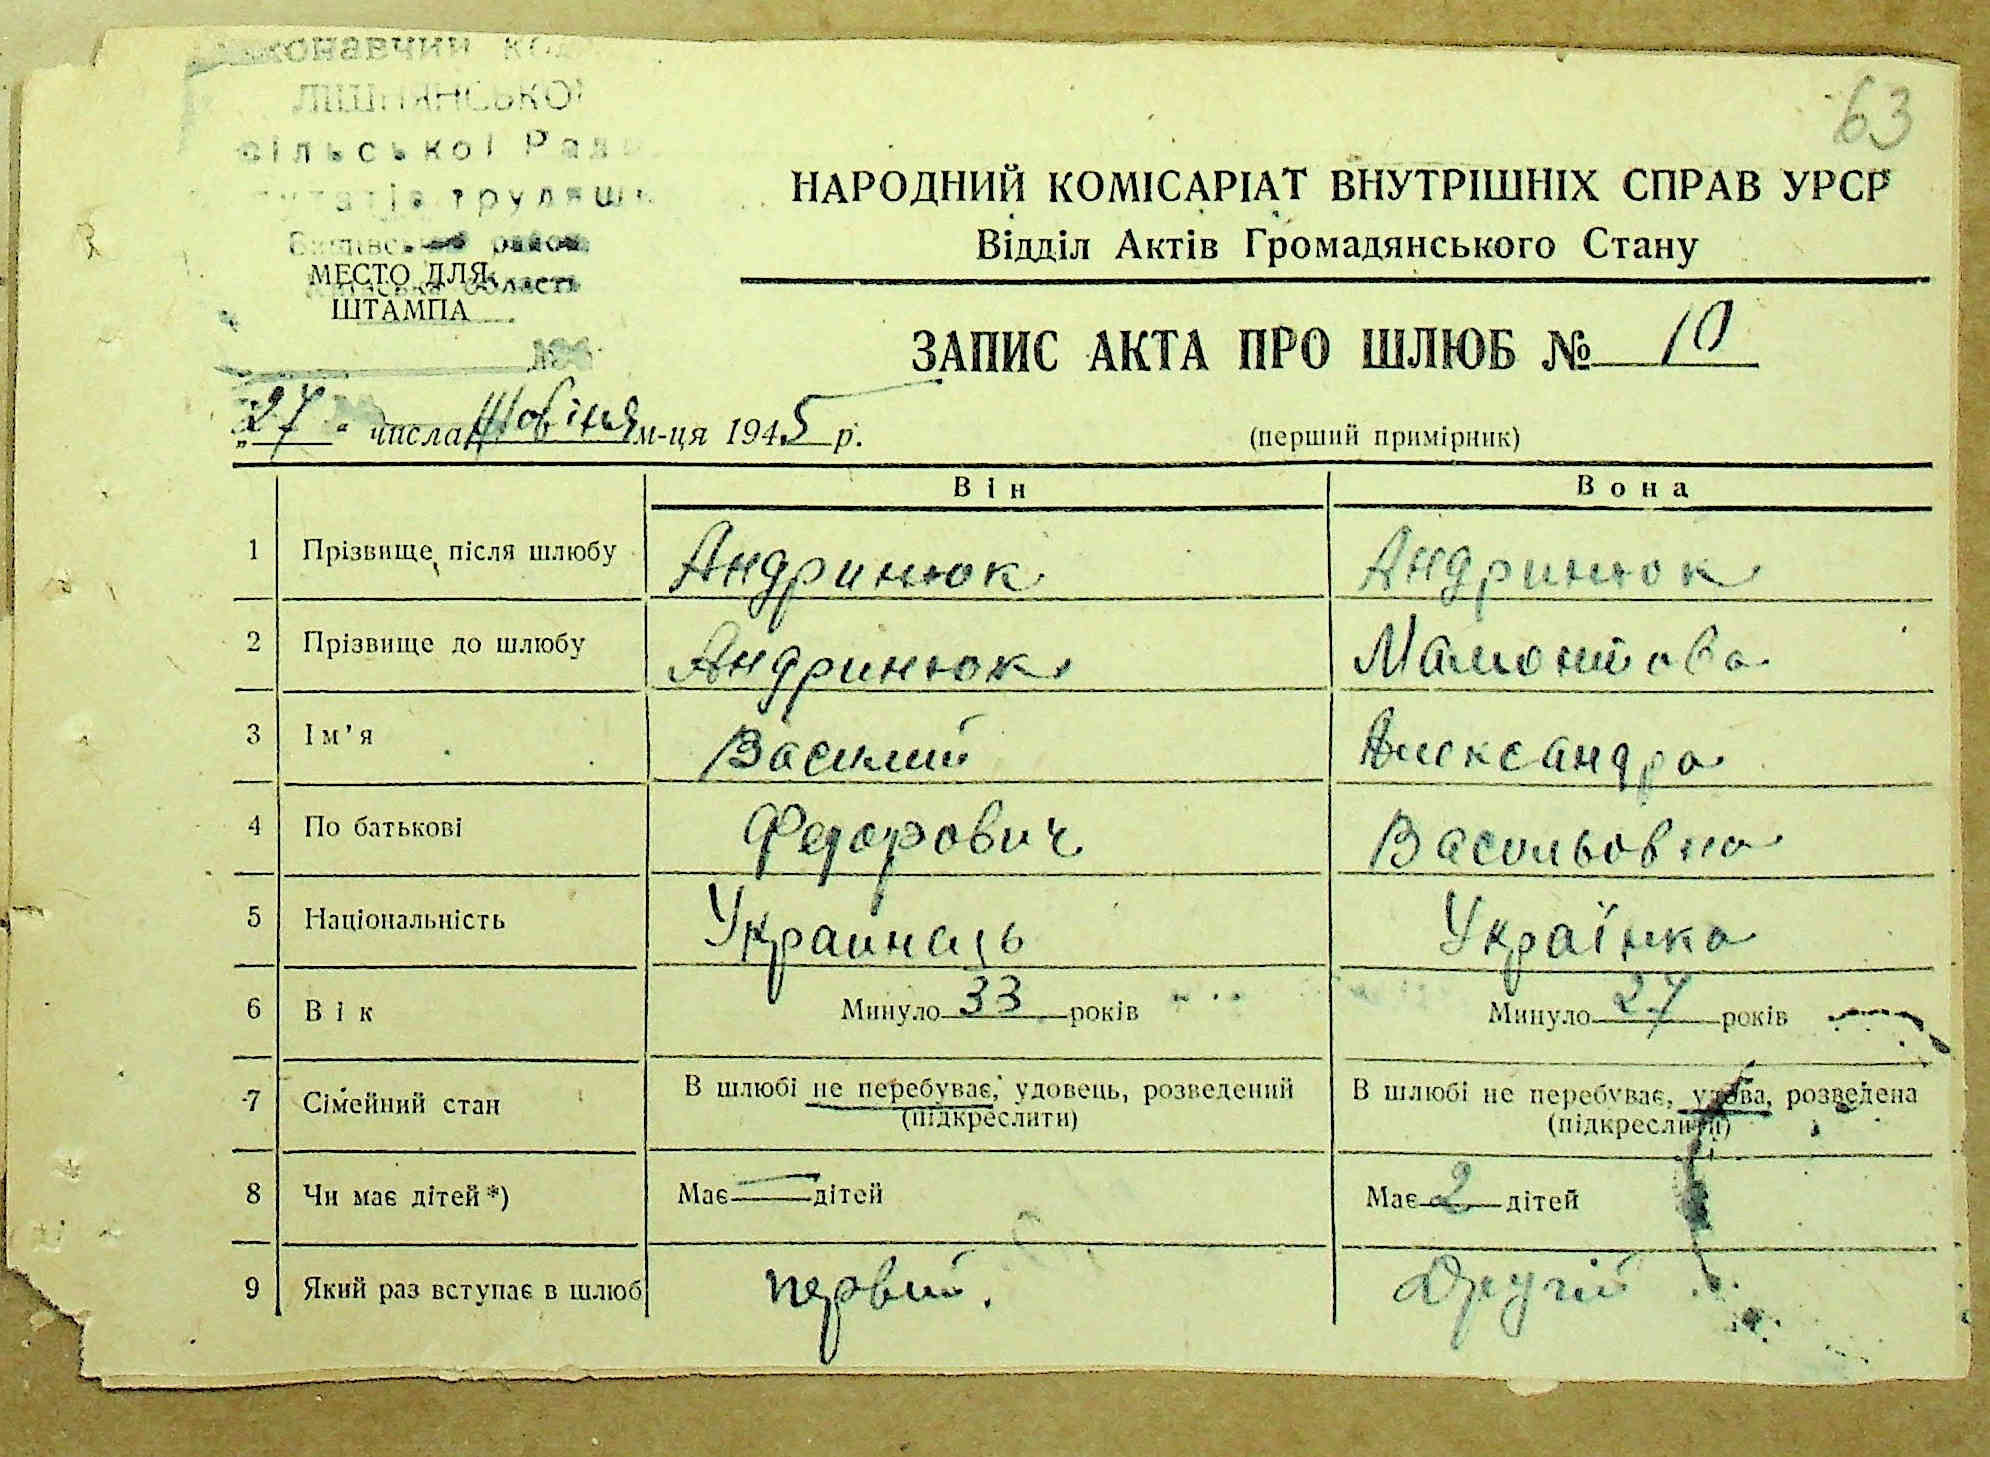 63
ЛІШНЯНСЬКОЇ
сільської Рад
район
область
МЕСТО ДЛЯ
ШТАМПА
НАРОДНИЙ КОМІСАРІАТ ВНУТРІШНІХ СПРАВ УРСР
Відділ Актів Громадянського Стану
ЗАПИС АКТА ПРО ШЛЮБ № 10
„27" числа м-ця 1945 р.
(перший примірник)
Він Вона
1 Прізвище після шлюбу Андринюк Андринюк
2 Прізвище до шлюбу Андринюк Мамонтова
3 Ім'я Василий Александра
4 По батькові Федорович Васильовна
5 Національність Украинець Українка
6 Вік Минуло 33 років Минуло 27 років
7 Сімейний стан В шлюбі не перебуває, удовець, розведений В шлюбі не перебуває, удова, розведена
(підкреслити) (підкреслити)
8 Чи має дітей*) Має — дітей Має 2 дітей
9 Який раз вступає в шлюб первий. Другий